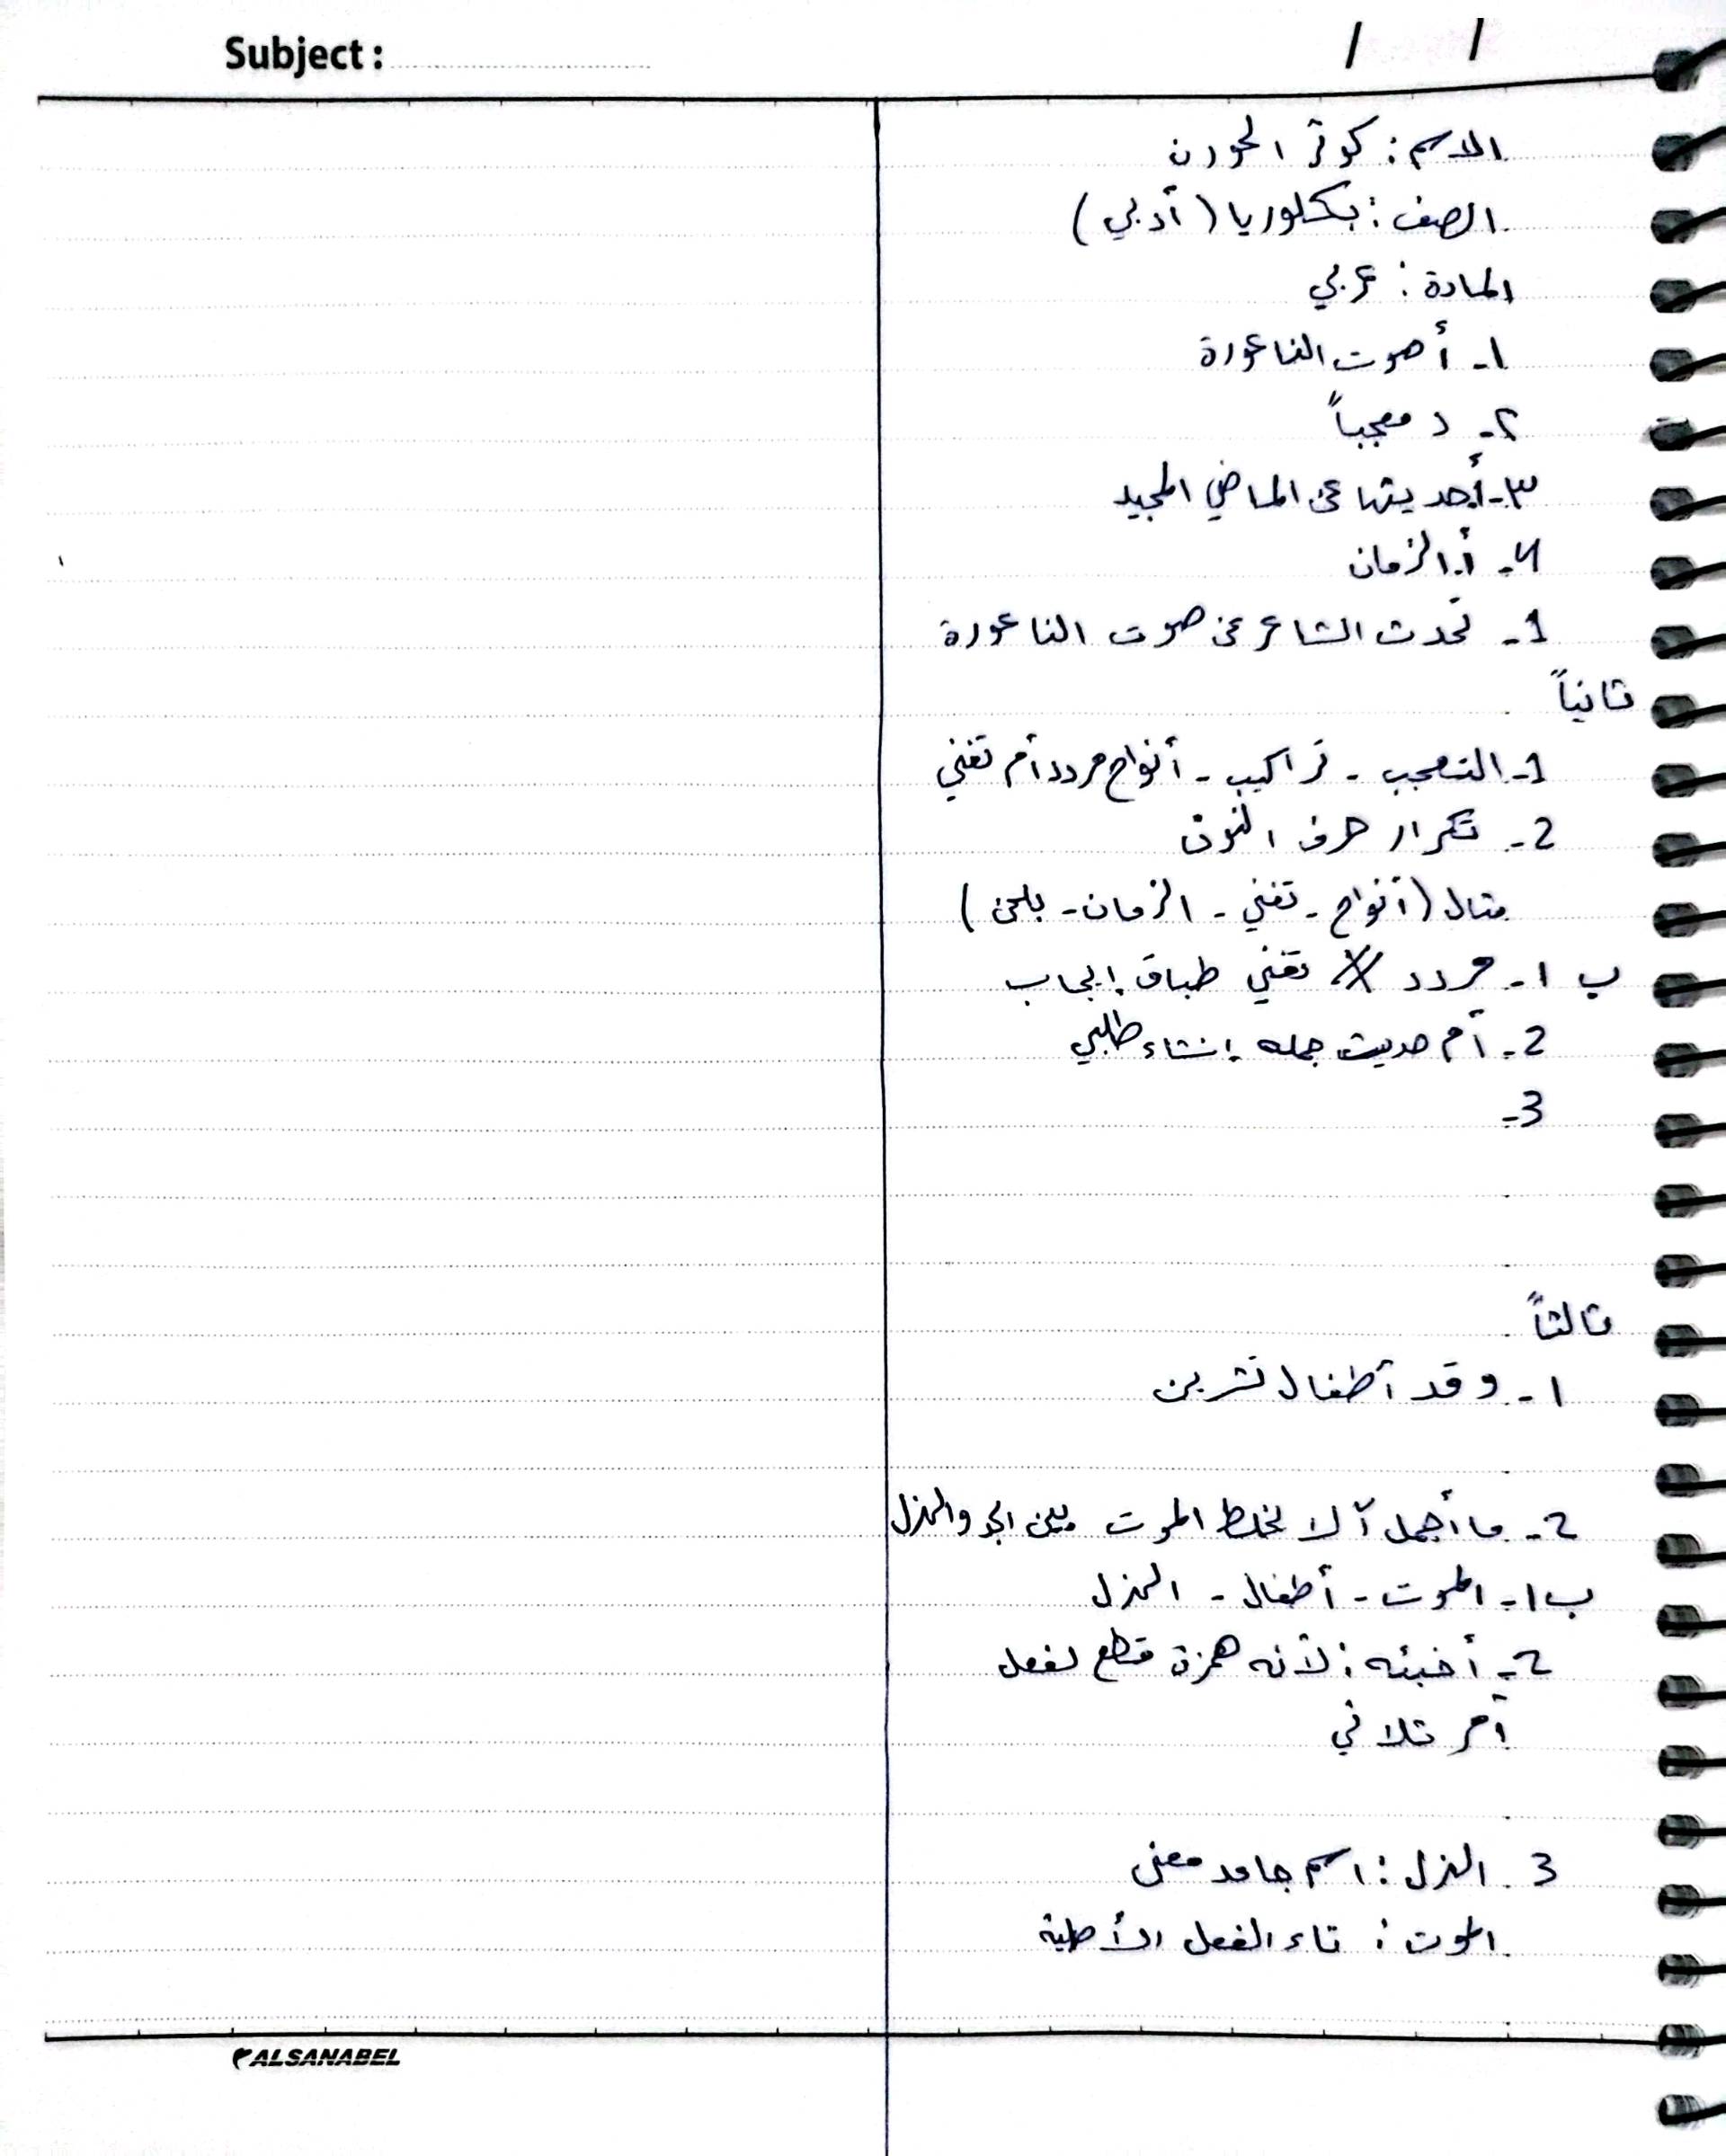 Subject :
/ /
الاسم : كوثر الحورن
الصف : بكلوريا ( أدبي )
المادة : عربي
١- أ صوت الناعورة
٢- د معجباً
٣- أحديثها عن الماضي المجيد
٤- أ. الزمان
1- تحدث الشاعر عن صوت الناعورة
ثانياً
1- التعجب - تراكيب - أنواح مردد أم تغني
2- تكرار حرف النون
مثال ( أنواح - تغني - الزمان - بلحن )
ب ١- مردد // تغني طباق إيجاب
2- أم حديث جمله إنشاء طلبي
3-
ثالثاً
١- وقد أطفال تشرين
2- ما أجمل ألا نخلط الموت بين الجد والهزل
ب ١- الموت - أطفال - الهزل
2- أخبئه : لأنه همزة قطع لفعل
أمر ثلاثي
3 الهزل : اسم جامد معنى
الموت : تاء الفعل الأصلية
ALSANABEL